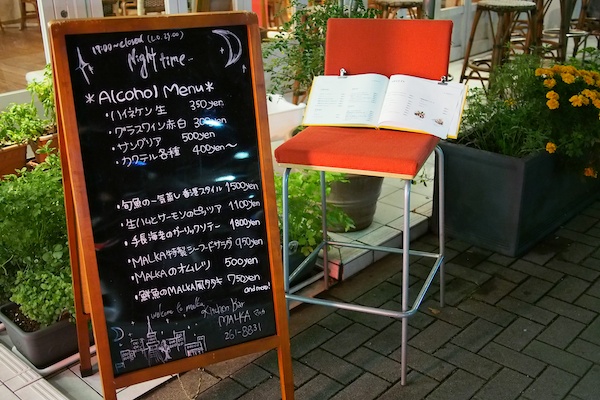 19:00~closed (L.O.23:00)
Night time...
*Alcohol Menu*
・ハイネケン生 350yen
・グラスワイン赤白 300yen
・サングリア 500yen
・カクテル各種 400yen〜
・旬魚の一気蒸し香港スタイル 1500yen
・生ハムとサーモンのピッツァ 1100yen
・手長海老のガーリックソテー 1800yen
・MALKA特製シーフードサラダ 950yen
・MALKAのオムレツ 500yen
・鮮魚のMALKA風タタキ 750yen
and more!
welcome to malka
Kitchen Bar
MALKA
261-8831